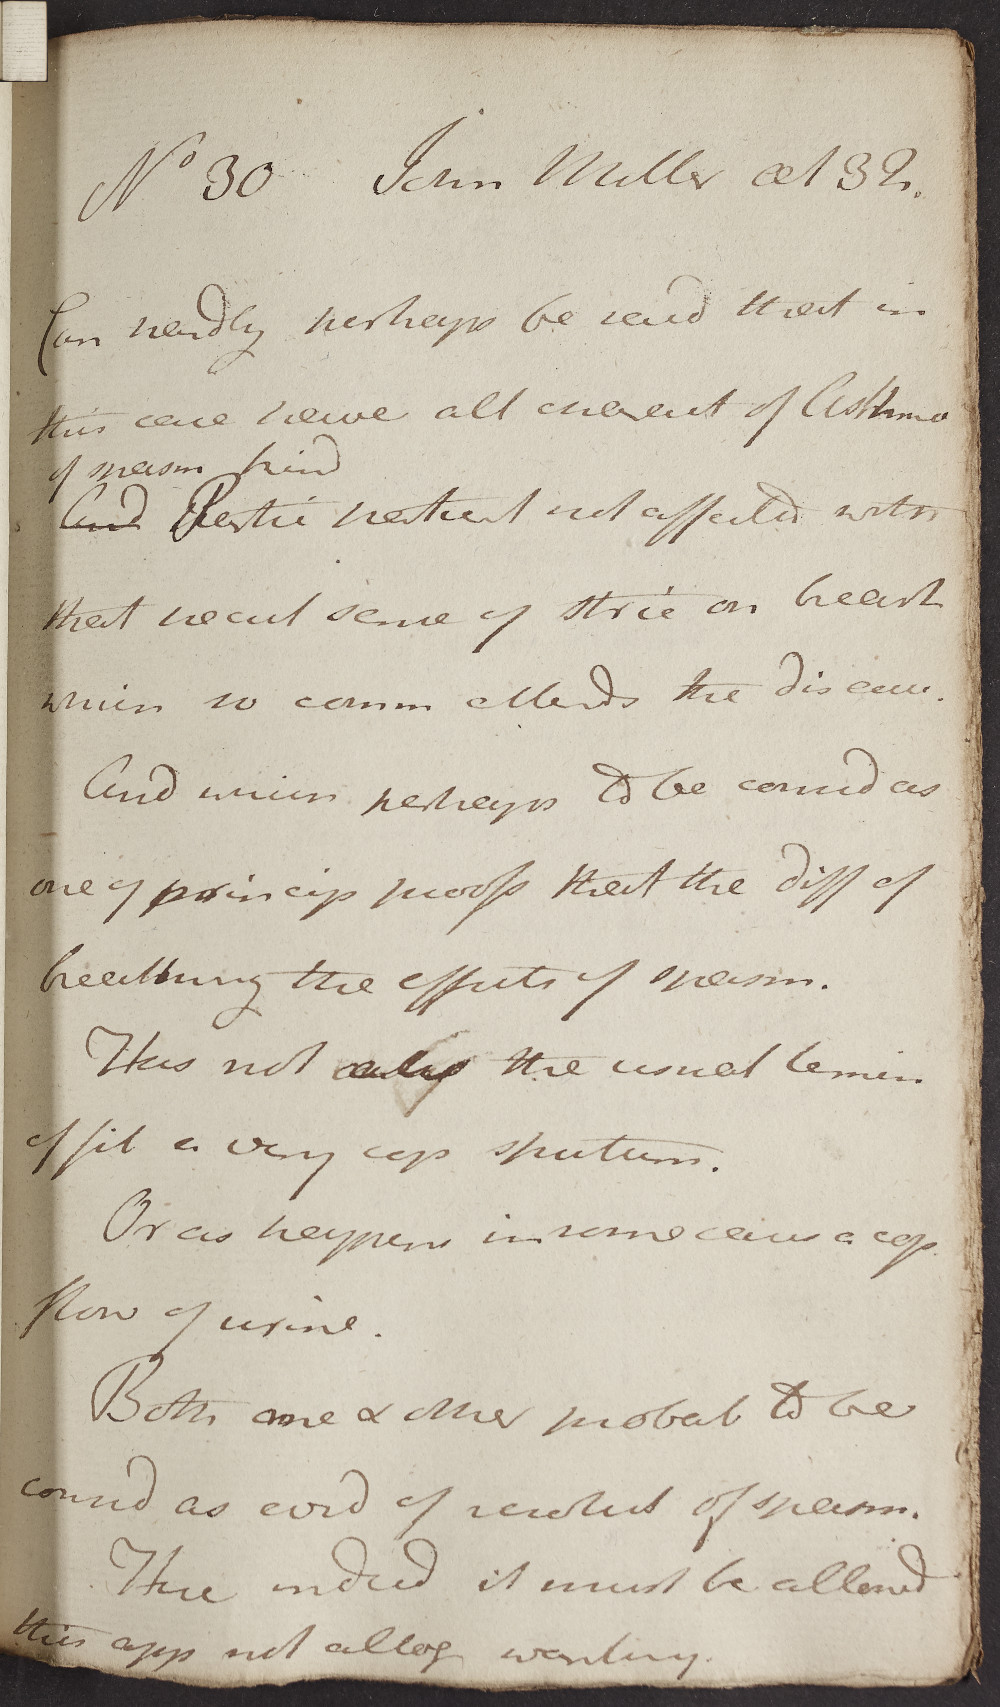 No 30 John Miller æt 32.
Can hardly perhaps be said that in
this case have all charact of Asthma
of spasm kind
And Partic patient not affected with
that pecul sense of stric on breast
which so comm attends the disease.
And which perhaps to be consid as
one of princip proofs that the diff of
breathing the effects of spasm.
Has not the usual termin
of fit a very cop sputum.
Or as happens in some cases a cop
flow of urine.
Both one & other probab to be
consid as evid of resolut of spasm.
Here indeed it must be allowed
this app not altog wanting.